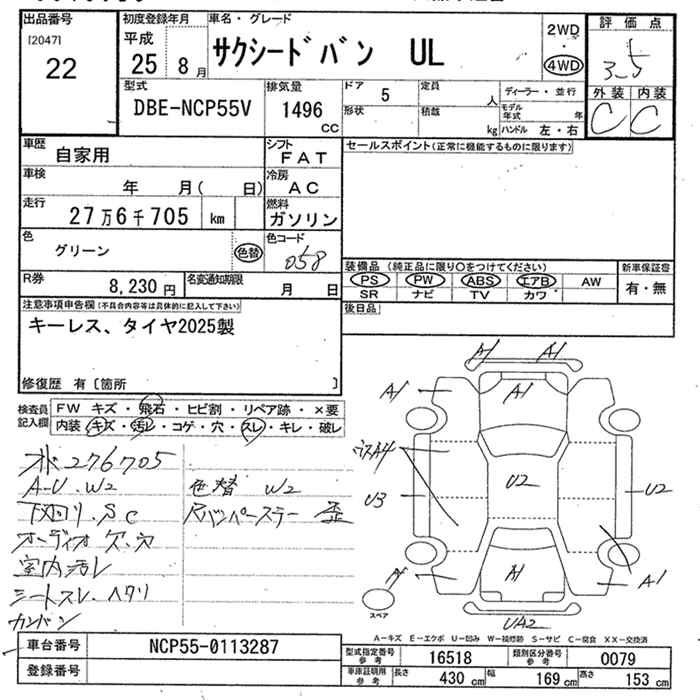 出品番号
[2047]
22
初度登録年月
平成
25年 8月
車名・グレード
サクシードバン UL
2WD
・
4WD
評価点
3.5
外装 内装
C C
型式
DBE-NCP55V
排気量
1496
cc
ドア 5
形状
定員 人
積載 kg
ディーラー・並行
モデル年式 年
ハンドル 左・右
車歴
自家用
シフト
FAT
車検
年 月( 日)
冷房
AC
走行
27万6千705 km
燃料
ガソリン
色
グリーン
色替
色コード
058
R券
8,230円
名変通知期限
月 日
セールスポイント(正常に機能するものに限ります)
装備品 (純正品に限り○をつけてください)
PS PW ABS エアB AW
SR ナビ TV カワ
新車保証書
有・無
後日品
注意事項申告欄(不具合内容等は具体的に記入して下さい)
キーレス、タイヤ2025製
修復歴 有〔箇所 〕
検査員記入欄
FW キズ・飛石・ヒビ割・リペア跡・×要
内装・キズ・汚レ・コゲ・穴・スレ・キレ・破レ
276705
A-U.W2
下回り.SC
オーディオ欠.穴
室内汚レ
シートスレ.ヘタリ
カンバン
色替 W2
Rバンパーステー 歪
A1 A1
A1 A1 A1
A4
U3 U2 U2
A1 A1
スペア
UA2
A−キズ E−エクボ U−凹み W−補修跡 S−サビ C−腐食 XX−交換済
車台番号
NCP55-0113287
登録番号
型式指定番号参考
16518
類別区分番号参考
0079
車庫証明用参考
長さ 430 cm 幅 169 cm 高さ 153 cm